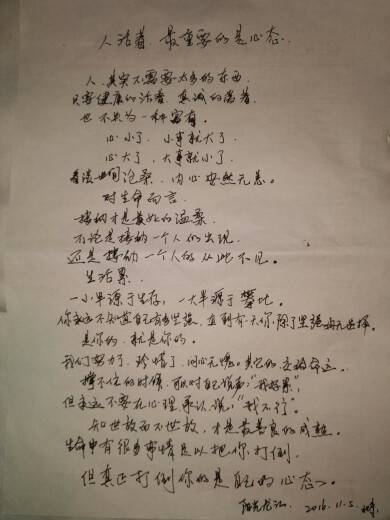 人活着,最重要的是心态.
人,其实不需要太多的东西,
只要健康的活着,真诚的爱着,
也不失为一种富有.
心小了,小事就大了,
心大了,大事就小了.
看淡世间沧桑,内心安然无恙.
对生命而言,
接纳才是最好的温柔.
不论是接纳一个人的出现,
还是接纳一个人的从此不见.
生活累,
一小半源于生存,一大半源于攀比.
你永远不知道自己有多坚强,直到有一天你除了坚强毫无选择.
是你的,就是你的.
我们努力了,珍惜了,问心无愧,其它的交给命运.
撑不住的时候,可以对自己说声:"我好累",
但永远不要在心理承认说:"我不行".
知世故而不世故,才是最善良的成熟.
生命中有很多事情足以把你打倒,
但真正打倒你的是自己的心态.
2016.11.5.